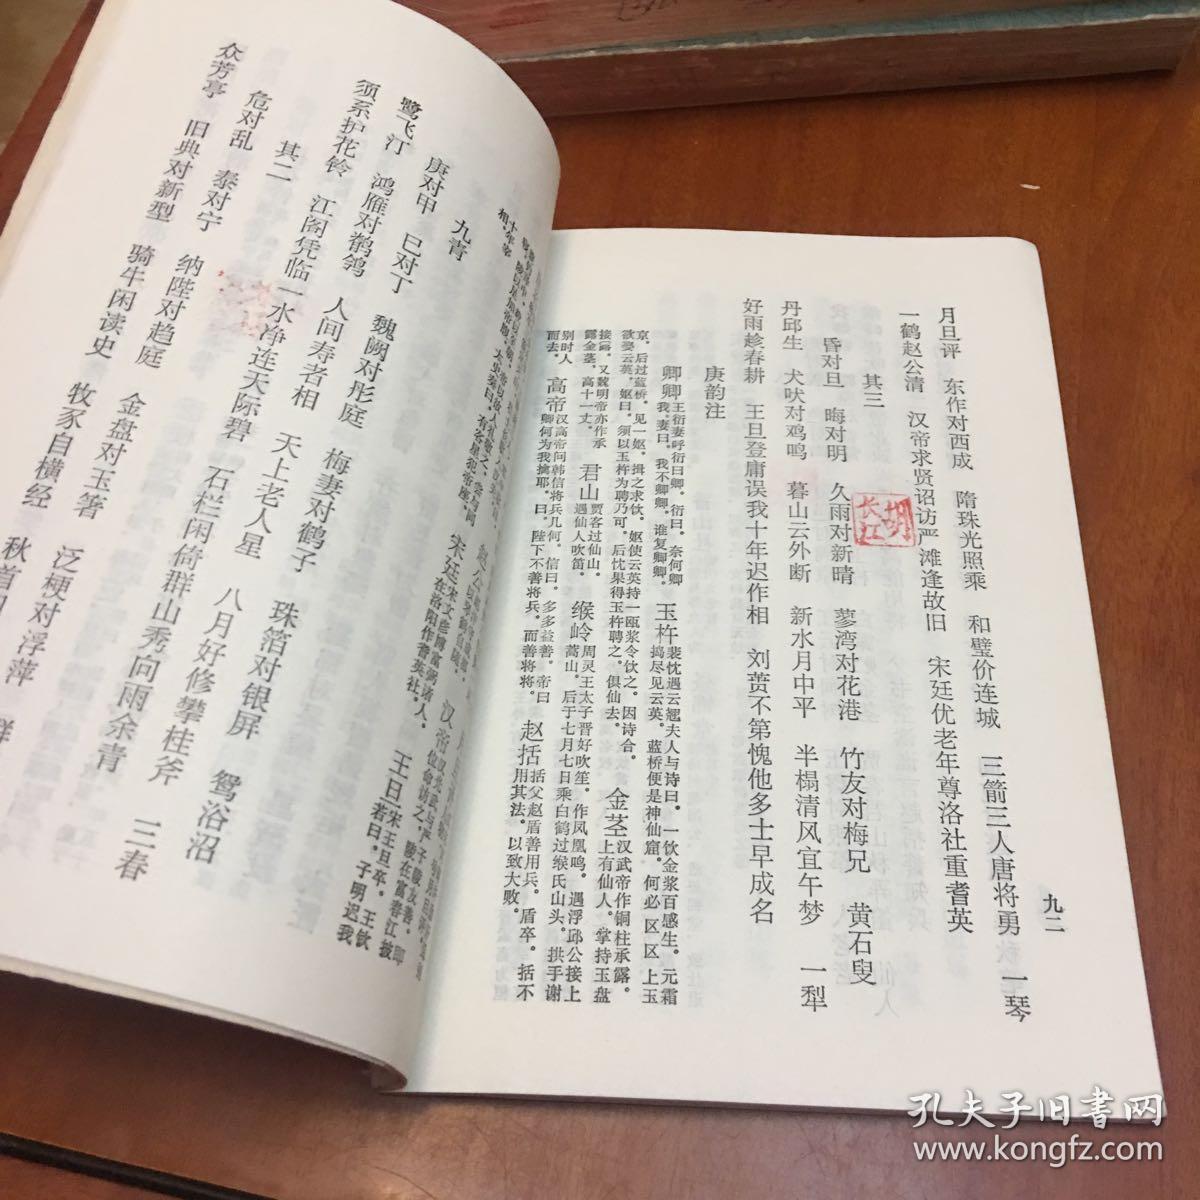 九二
月旦评　东作对西成　隋珠光照乘　和璧价连城　三箭三人唐将勇　一琴
一鹤赵公清　汉帝求贤诏访严滩逢故旧　宋廷优老年尊洛社重耆英
其三
昏对旦　晦对明　久雨对新晴　蓼湾对花港　竹友对梅兄　黄石叟
丹邱生　犬吠对鸡鸣　暮山云外断　新水月中平　半榻清风宜午梦　一犁
好雨趁春耕　王旦登庸误我十年迟作相　刘蒉不第愧他多士早成名
庚韵注
卿卿 王衍妻呼衍曰卿。衍曰。奈何卿我。妻曰。我不卿卿。谁复卿卿。
玉杵 裴忱遇云翘夫人与诗曰。一饮金浆百感生。元霜捣尽见云英。蓝桥便是神仙窟。何必区区上玉
京。后过蓝桥。见一妪。揖之求饮。妪使云英持一瓯浆令饮之。因诗合。
欲娶云英。妪曰。须以玉杵为聘乃可。后忱果得玉杵聘之。俱仙去。
金茎 汉武帝作铜柱承露。上有仙人。掌持玉盘
接露。又魏明帝亦作承露金茎。高十一丈。
君山 贾客过仙山。遇仙人吹笛。
缑岭 周灵王太子晋好吹笙。作凤凰鸣。遇浮邱公接上嵩山。后于七月七日乘白鹤过缑氏山头。拱手谢
别时人而去。
高帝 汉高帝问韩信将兵几何。信曰。多多益善。帝曰卿何为我擒耶。曰。陛下不善将兵。而善将将。
赵括 括父赵盾善用兵。盾卒。括不用其法。以致大败。
胡长江
宋廷 宋文彦博富弼诸人。在洛阳作耆英社。
王旦 宋王旦卒。王钦若曰。子明迟我
十年宰相。
九青
庚对甲　巳对丁　魏阙对彤庭　梅妻对鹤子　珠箔对银屏　鸳浴沼
鹭飞汀　鸿雁对鹡鸰　人间寿者相　天上老人星　八月好修攀桂斧　三春
须系护花铃　江阁凭临一水净连天际碧　石栏闲倚群山秀向雨余青
其二
危对乱　泰对宁　纳陛对趋庭　金盘对玉箸　泛梗对浮萍　群
众芳亭　旧典对新型　骑牛闲读史　牧豕自横经　秋首
孔夫子旧书网
www.kongfz.com